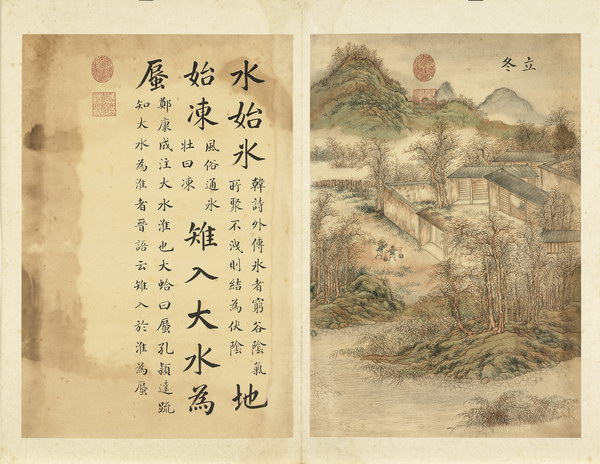 立冬
水始氷
韓詩外傳氷者窮谷陰氣
所聚不洩則結為伏陰
地
始凍
風俗通氷
壯曰凍
雉入大水為
蜃
鄭康成注大水淮也大蛤曰蜃孔穎達疏
知大水為淮者晉語云雉入於淮為蜃